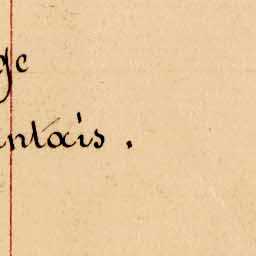 ge
ntais.